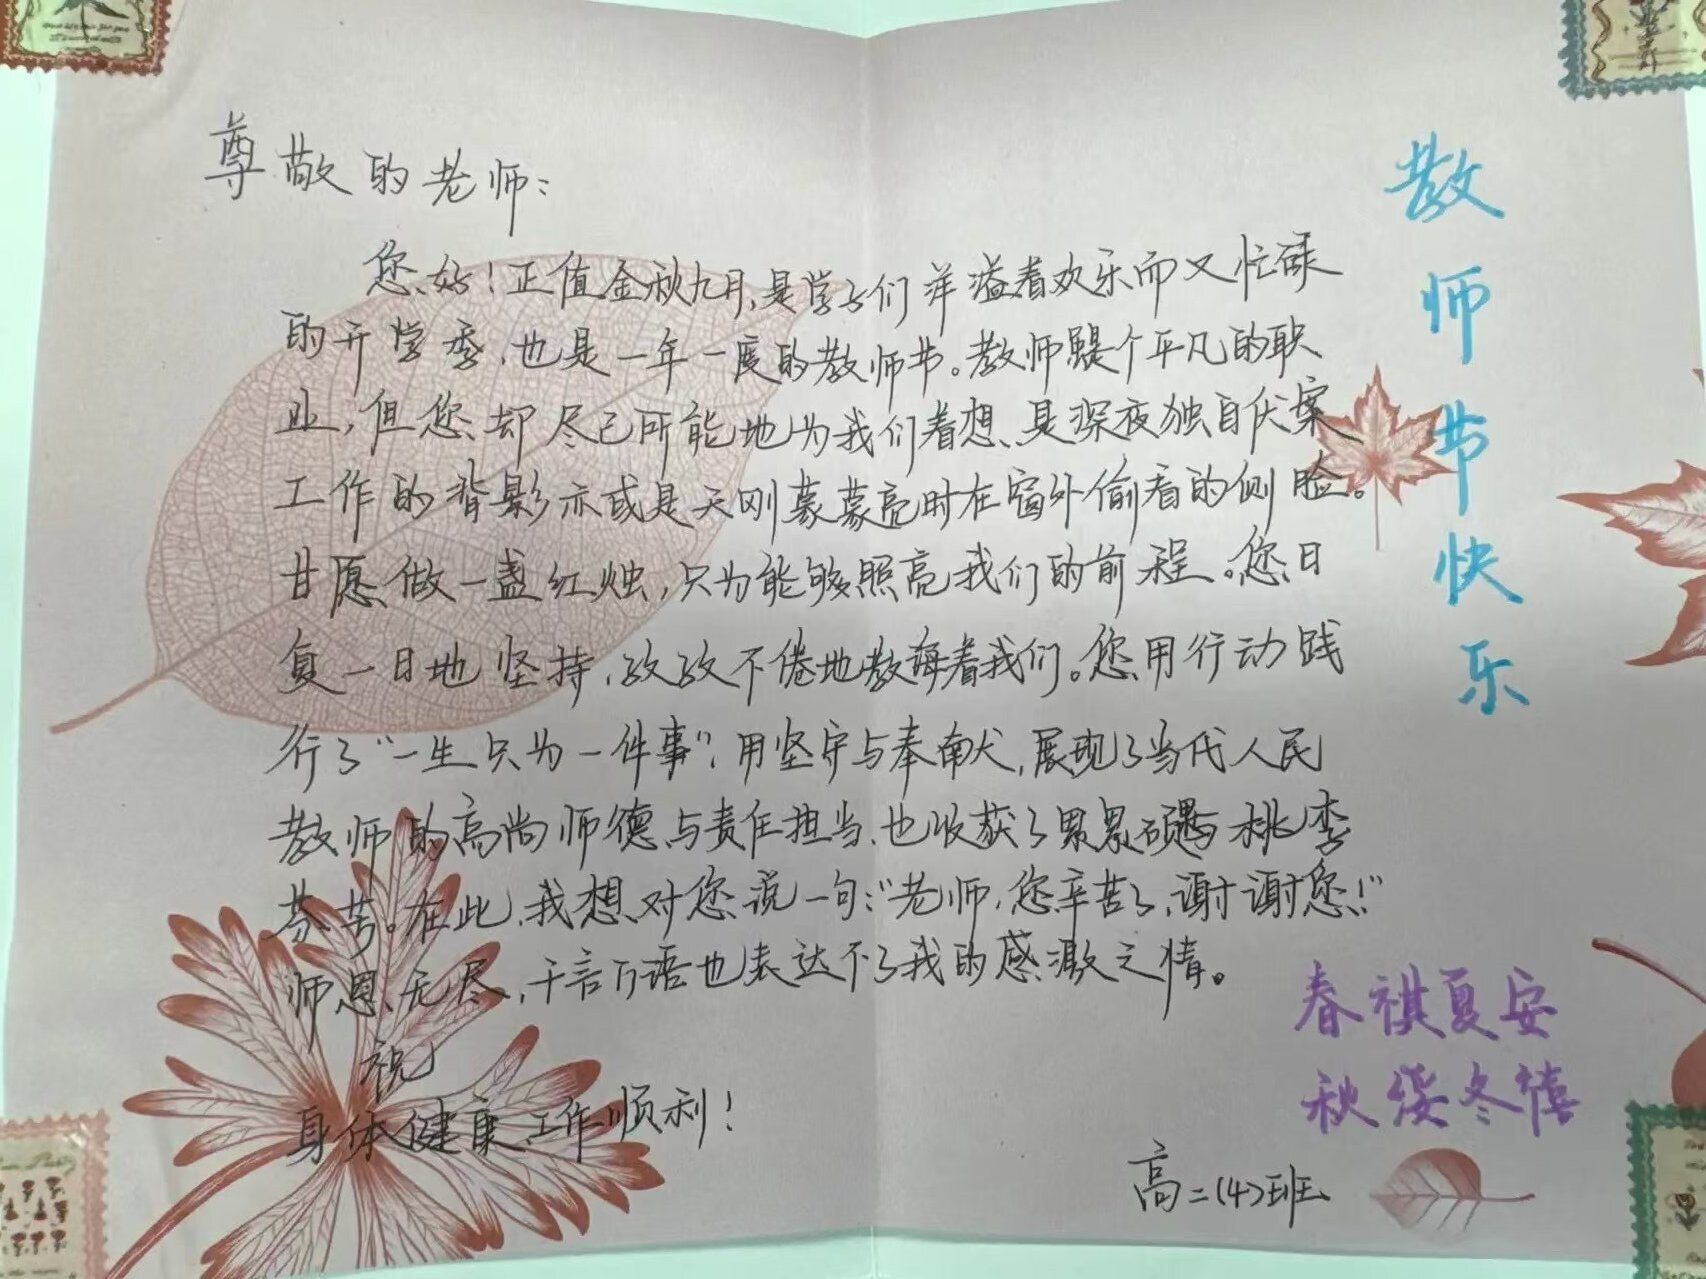 尊敬的老师：
您好！正值金秋九月，是学子们洋溢着欢乐而又忙碌
的开学季，也是一年一度的教师节。教师是个平凡的职
业，但您却尽己所能地为我们着想、是深夜独自伏案
工作的背影亦或是天刚蒙蒙亮时在窗外偷看的侧脸。
甘愿做一盏红烛，只为能够照亮我们的前程。您日
复一日地坚持，孜孜不倦地教诲着我们。您用行动践
行了“一生只为一件事”，用坚守与奉献，展现了当代人民
教师的高尚师德与责任担当，也收获了累累硕果与桃李
芬芳。在此，我想对您说一句：“老师，您辛苦了，谢谢您！”
师恩无尽，千言万语也表达不了我的感激之情。
祝
身体健康，工作顺利！
高二(4)班
教师节快乐
春祺夏安
秋绥冬禧